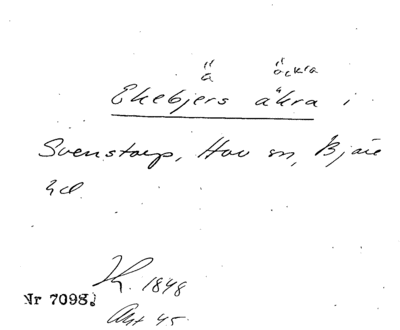 ä öckra
Ekebjers åkra i
Svenstorp, Hov sn, Bjäre
hd
K. 1848
Nr 7098.
Akt 45